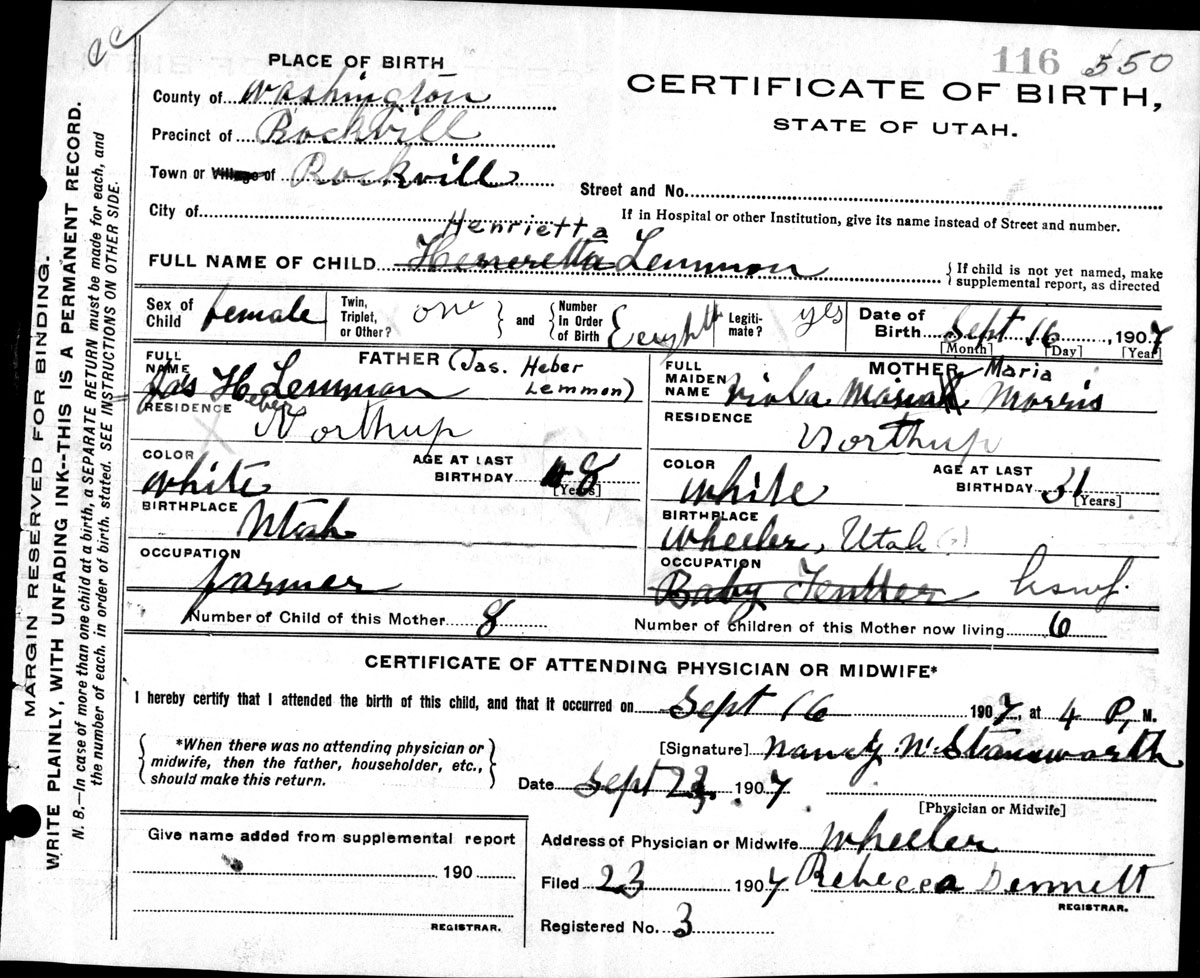 cc
116 550
PLACE OF BIRTH
CERTIFICATE OF BIRTH,
STATE OF UTAH.
County of Washington
Precinct of Rockvill
Town or Village of Rockvill
Street and No.
City of
If in Hospital or other Institution, give its name instead of Street and number.
Henrietta
FULL NAME OF CHILD Heneretta Lemmon
{ If child is not yet named, make
supplemental report, as directed
Sex of Child female
Twin, Triplet, or Other? one
and
Number In Order of Birth Eeighth
Legiti-mate? yes
Date of Birth Sept 16, 1907
[Month] [Day] [Year]
FATHER (Jas. Heber Lemmon)
FULL NAME Jas H. Lemmon
Heber
RESIDENCE Northup
COLOR white
AGE AT LAST BIRTHDAY 48
[Years]
BIRTHPLACE Utah
OCCUPATION farmer
MOTHER Maria
FULL MAIDEN NAME Viola Mariah Morris
RESIDENCE Northup
COLOR white
AGE AT LAST BIRTHDAY 31
[Years]
BIRTHPLACE Wheeler, Utah (?)
OCCUPATION Baby Tenther hswf.
Number of Child of this Mother 8
Number of children of this Mother now living 6
CERTIFICATE OF ATTENDING PHYSICIAN OR MIDWIFE*
I hereby certify that I attended the birth of this child, and that it occurred on Sept 16 1907, at 4 P. M.
{ *When there was no attending physician or
midwife, then the father, householder, etc.,
should make this return. }
[Signature] Nancy N. Stanworth
Date Sept 23, 1907
[Physician or Midwife]
Give name added from supplemental report
190
REGISTRAR.
Address of Physician or Midwife Wheeler
Filed 23 1907 Rebecca Dennett
REGISTRAR.
Registered No. 3
MARGIN RESERVED FOR BINDING.
WRITE PLAINLY, WITH UNFADING INK--THIS IS A PERMANENT RECORD.
N. B.—In case of more than one child at a birth, a SEPARATE RETURN must be made for each, and
the number of each, in order of birth, stated. SEE INSTRUCTIONS ON OTHER SIDE.